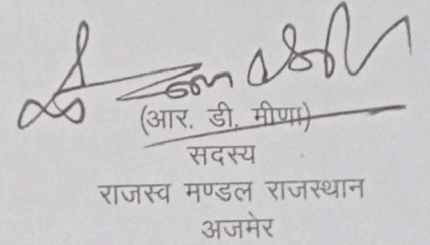 (आर. डी. मीणा)
सदस्य
राजस्व मण्डल राजस्थान
अजमेर